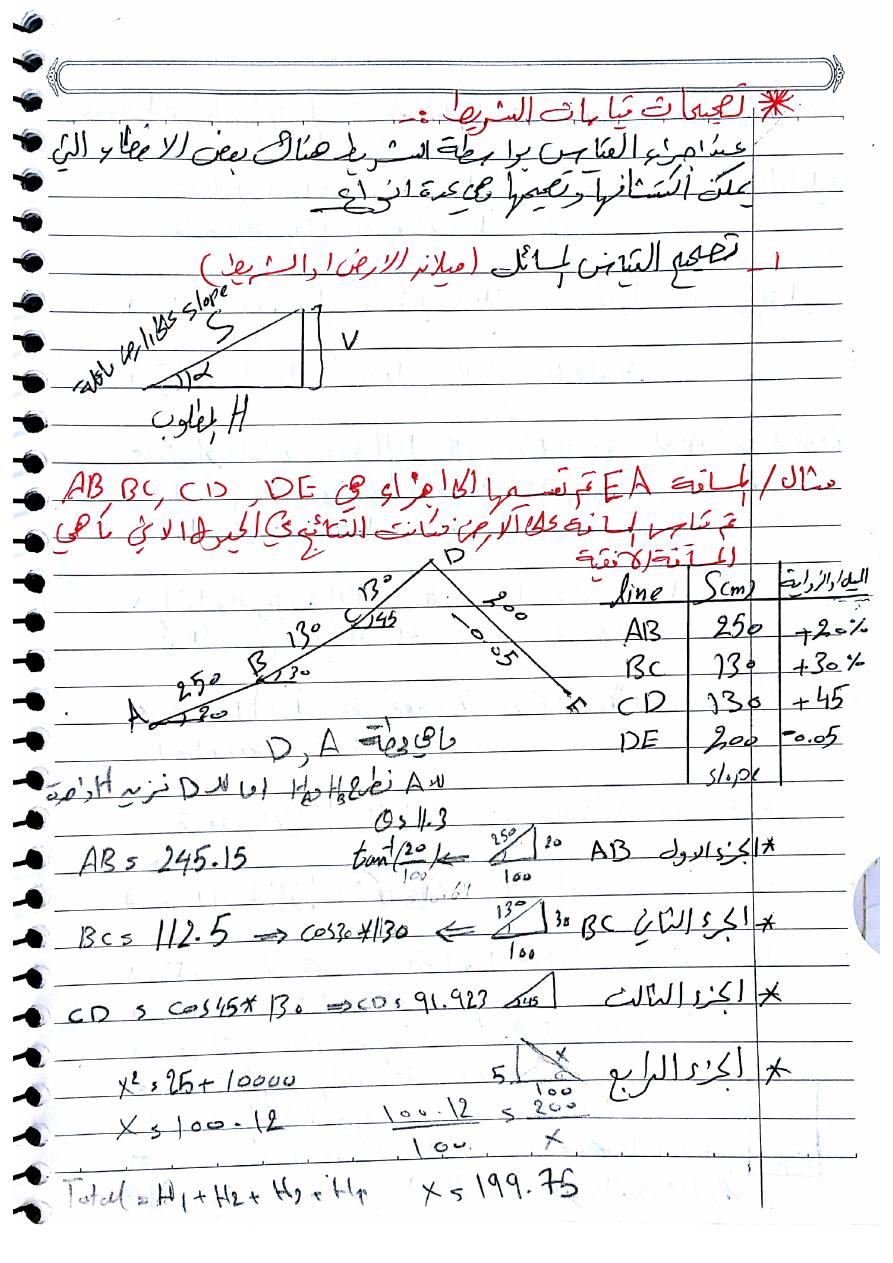 * تصحيحات قياسات الشريط :-
عند اجراء القياس بواسطة الشريط هناك بعض الاخطاء التي
يمكن اكتشافها وتصحيحها وهي عدة انواع
1- تصحيح القياس المائل (ميلانه الارض او الشريط)
slope
S
V
α
المطلوب H
مثال / المسافة EA تم تقسيمها الى اجزاء هي AB, BC, CD, DE
تم قياس المسافة على الارض فكانت النتائج في الجدول الاتي ما هي
المسافة الافقية
line S(m) الميل او الزاوية
AB 250 +20%
BC 130 +30%
CD 130 +45
DE 200 -0.05
slope
D
130
C
45
200
-0.05
130
B
30
250
A
20
E
ما هي D, A
θ = 11.3
* الجزء الاول AB 250 20 100 ← tan⁻¹(20/100) AB = 245.15
* الجزء الثاني BC 130 30 100 ⇐ cos30*130 ⇒ BC = 112.5
* الجزء الثالث 45 CD = cos45 * 130 ⇒ CD = 91.923
* الجزء الرابع 5 x 100
x² = 25 + 10000
x = 100.12 100.12/100 = 200/x
Total = H1 + H2 + H3 + H4 x = 199.75